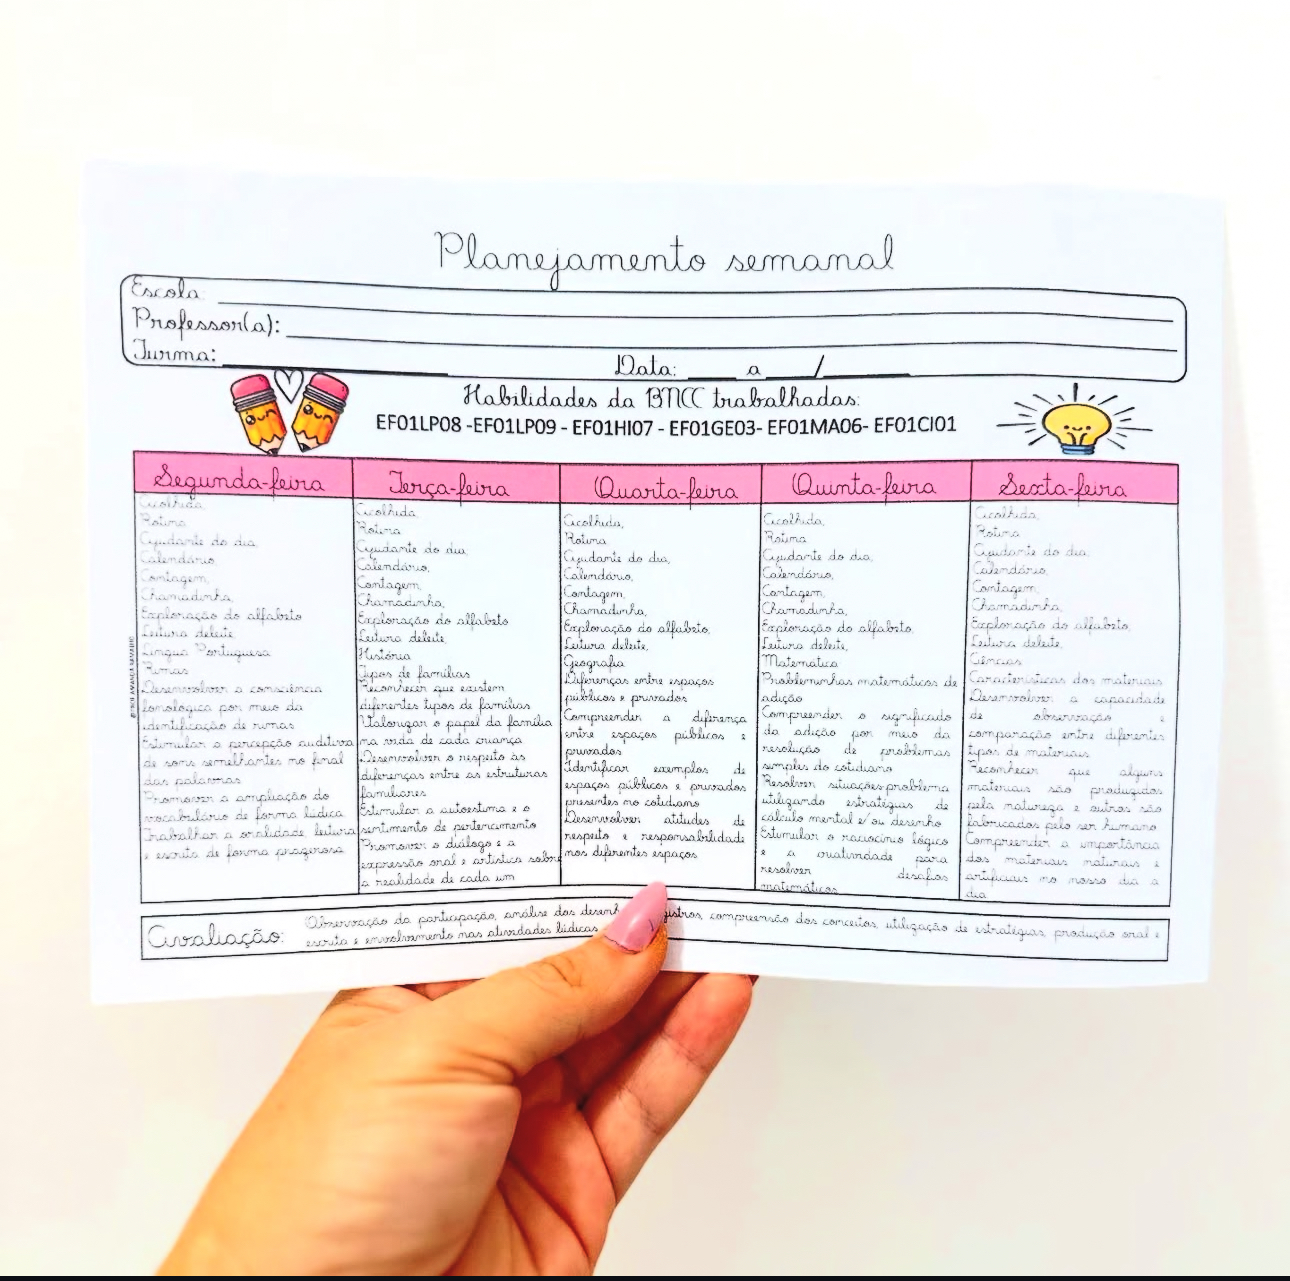 Planejamento semanal
Escola:
Professor(a):
Turma:
Data: a /
Habilidades da BNCC trabalhadas:
EF01LP08 -EF01LP09 - EF01HI07 - EF01GE03- EF01MA06- EF01CI01
Segunda-feira
Acolhida,
Rotina
Ajudante do dia,
Calendário,
Contagem,
Chamadinha,
Exploração do alfabeto
Leitura deleite,
Língua Portuguesa
Rimas
Desenvolver a consciência
fonológica por meio da
identificação de rimas
Estimular a percepção auditiva
de sons semelhantes no final
das palavras
Promover a ampliação do
vocabulário de forma lúdica
Trabalhar a oralidade leitura
e escrita de forma prazerosa
Terça-feira
Acolhida,
Rotina
Ajudante do dia,
Calendário,
Contagem,
Chamadinha,
Exploração do alfabeto
Leitura deleite,
História
Tipos de famílias
Reconhecer que existem
diferentes tipos de famílias
Valorizar o papel da família
na vida de cada criança
Desenvolver o respeito às
diferenças entre as estruturas
familiares
Estimular a autoestima e o
sentimento de pertencimento
Promover o diálogo e a
expressão oral e artística sobre
a realidade de cada um
Quarta-feira
Acolhida,
Rotina
Ajudante do dia,
Calendário,
Contagem,
Chamadinha,
Exploração do alfabeto,
Leitura deleite,
Geografia
Diferenças entre espaços
públicos e privados
Compreender a diferença
entre espaços públicos e
privados
Identificar exemplos de
espaços públicos e privados
presentes no cotidiano
Desenvolver atitudes de
respeito e responsabilidade
nos diferentes espaços
Quinta-feira
Acolhida,
Rotina
Ajudante do dia,
Calendário,
Contagem,
Chamadinha,
Exploração do alfabeto,
Leitura deleite,
Matemática
Probleminhas matemáticos de
adição
Compreender o significado
da adição por meio da
resolução de problemas
simples do cotidiano
Resolver situações-problema
utilizando estratégias de
cálculo mental e/ou desenho
Estimular o raciocínio lógico
e a criatividade para
resolver desafios
matemáticos
Sexta-feira
Acolhida,
Rotina
Ajudante do dia,
Calendário,
Contagem,
Chamadinha,
Exploração do alfabeto,
Leitura deleite,
Ciências
Características dos materiais
Desenvolver a capacidade
de observação e
comparação entre diferentes
tipos de materiais
Reconhecer que alguns
materiais são produzidos
pela natureza e outros são
fabricados pelo ser humano
Compreender a importância
dos materiais naturais e
artificiais no nosso dia a
dia
Avaliação:
Observação da participação, análise dos desenh gistros, compreensão dos conceitos, utilização de estratégias, produção oral e
escrita e envolvimento nas atividades lúdicas